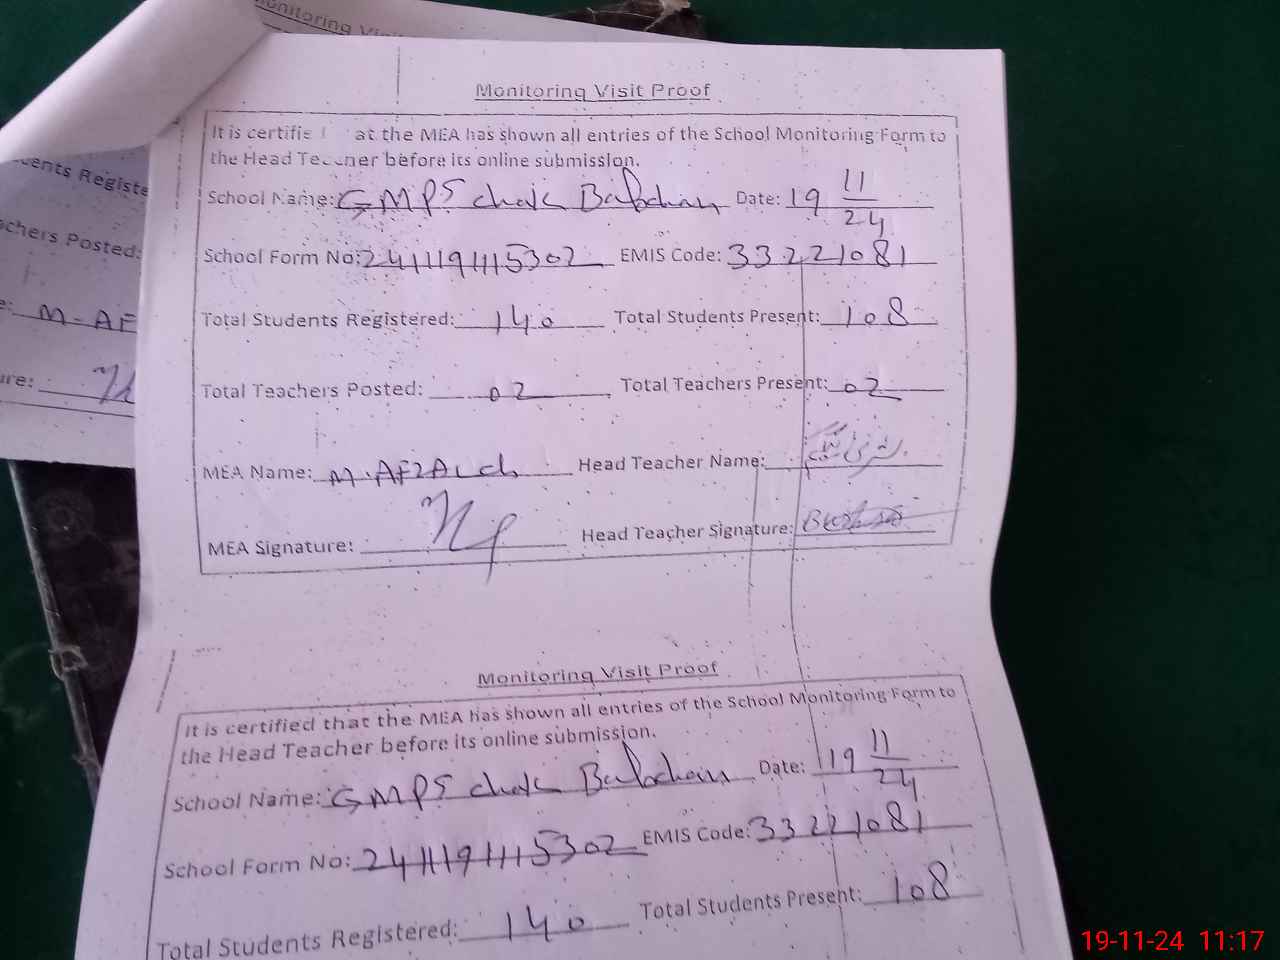 onitoring Visi
Monitoring Visit Proof
It is certifie at the MEA has shown all entries of the School Monitoring Form to
the Head Teacher before its online submission.
School Name: GMPS chak Date: 19 11/24
School Form No: 2411191115302 EMIS Code: 33221081
Total Students Registered: 140 Total Students Present: 108
Total Teachers Posted: 02 Total Teachers Present: 02
MEA Name: M.AFZAL ch Head Teacher Name:
MEA Signature: Head Teacher Signature:
ents Registe
achers Posted:
M-AF
ure:
Monitoring Visit Proof
It is certified that the MEA has shown all entries of the School Monitoring Form to
the Head Teacher before its online submission.
School Name: GMPS chak Date: 19 11/24
School Form No: 2411191115302 EMIS Code: 33221081
Total Students Registered: 140 Total Students Present: 108
19-11-24 11:17